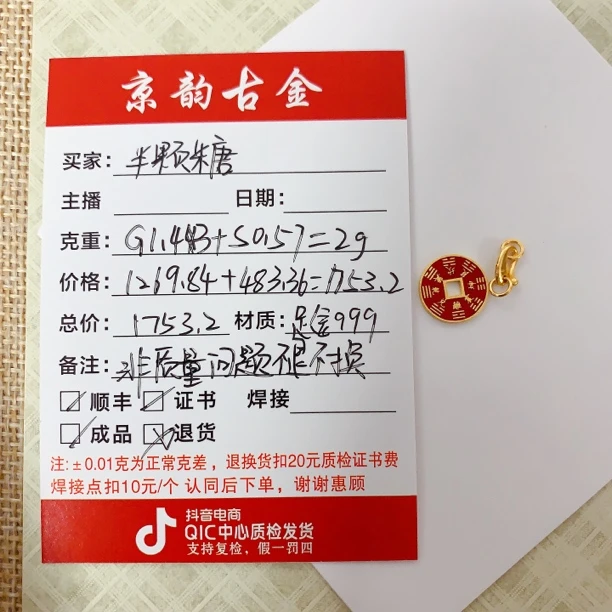 京韵古金
买家：半颗糖
主播 日期：
克重：G1.443+S0.57=2g
价格：1269.84+483.36=1753.2
总价：1753.2 材质：足金999
备注：非质量问题不退不换
顺丰 证书 焊接
成品 退货
注：±0.01克为正常克差，退换货扣20元质检证书费
焊接点扣10元/个 认同后下单，谢谢惠顾
抖音电商
QIC中心质检发货
支持复检，假一罚四